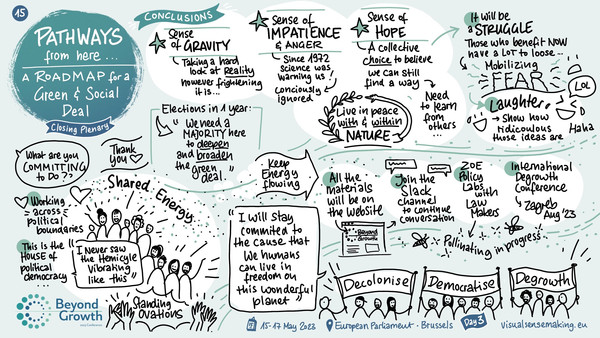 15
PATHWAYS
from here ...
A ROADMAP for a
Green & Social
Deal
Closing Plenary
CONCLUSIONS
Sense
of GRAVITY
Taking a hard
look at Reality
however frightening
it is...
Sense of
IMPATIENCE
& ANGER
Since 1972
science was
warning us
↓
conciously
ignored
Sense of
HOPE
A collective
choice to believe
we can still
find a way
Need
to learn
from
others
...
Live in peace
with & within
NATURE
It will be
a STRUGGLE
Those who benefit NOW
have a LOT to loose...
Mobilizing
FEAR
Laughter
→ Show how
ridiculous
those ideas are
LOL
Haha
Elections in 1 year:
"We need a
MAJORITY here
to deepen
and broaden
the green
deal."
What are you
COMMITTING
to Do??
Thank
you ♡
Working
across
political
boundaries
This is the
House of
political
democracy
Shared Energy
"I Never saw
the Hemicycle
Vibrating
like this"
Standing
OVATIONS
Keep
Energy
flowing
"I will stay
commited to
the cause that
We humans
can live in
freedom on
this wonderful
planet"
All the
materials
will be on
the website
Beyond
Growth
Join the
Slack
channel
to continue
conversation
ZOE
Policy
Labs
with
Law
Makers
International
Degrowth
Conference
↳ Zagreb
Aug '23
Pollinating in progress
Decolonise
Democratise
Degrowth
Beyond
Growth
15-17 May 2023
European Parliament · Brussels
Day 3
visualsensemaking.eu